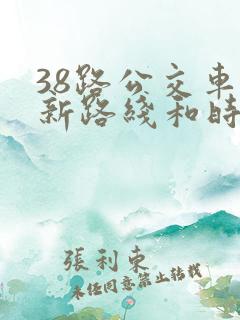 38路公交車
新路綫和時
張利東
未任同意禁止转载